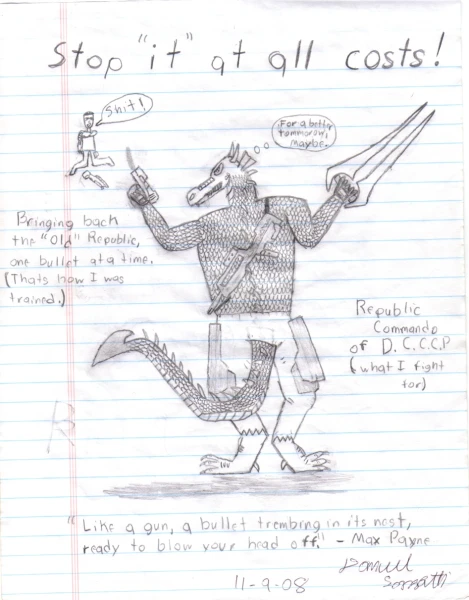 Stop "it" at all costs!
Shit!
For a better
tommorow,
maybe.
Bringing back
the "Old" Republic,
one bullet at a time.
(Thats how I was
trained.)
Republic
Commando
of D.C.C.C.P
(what I fight
for)
R
"Like a gun, a bullet trembing in its nest,
ready to blow your head off." - Max Payne
11-9-08